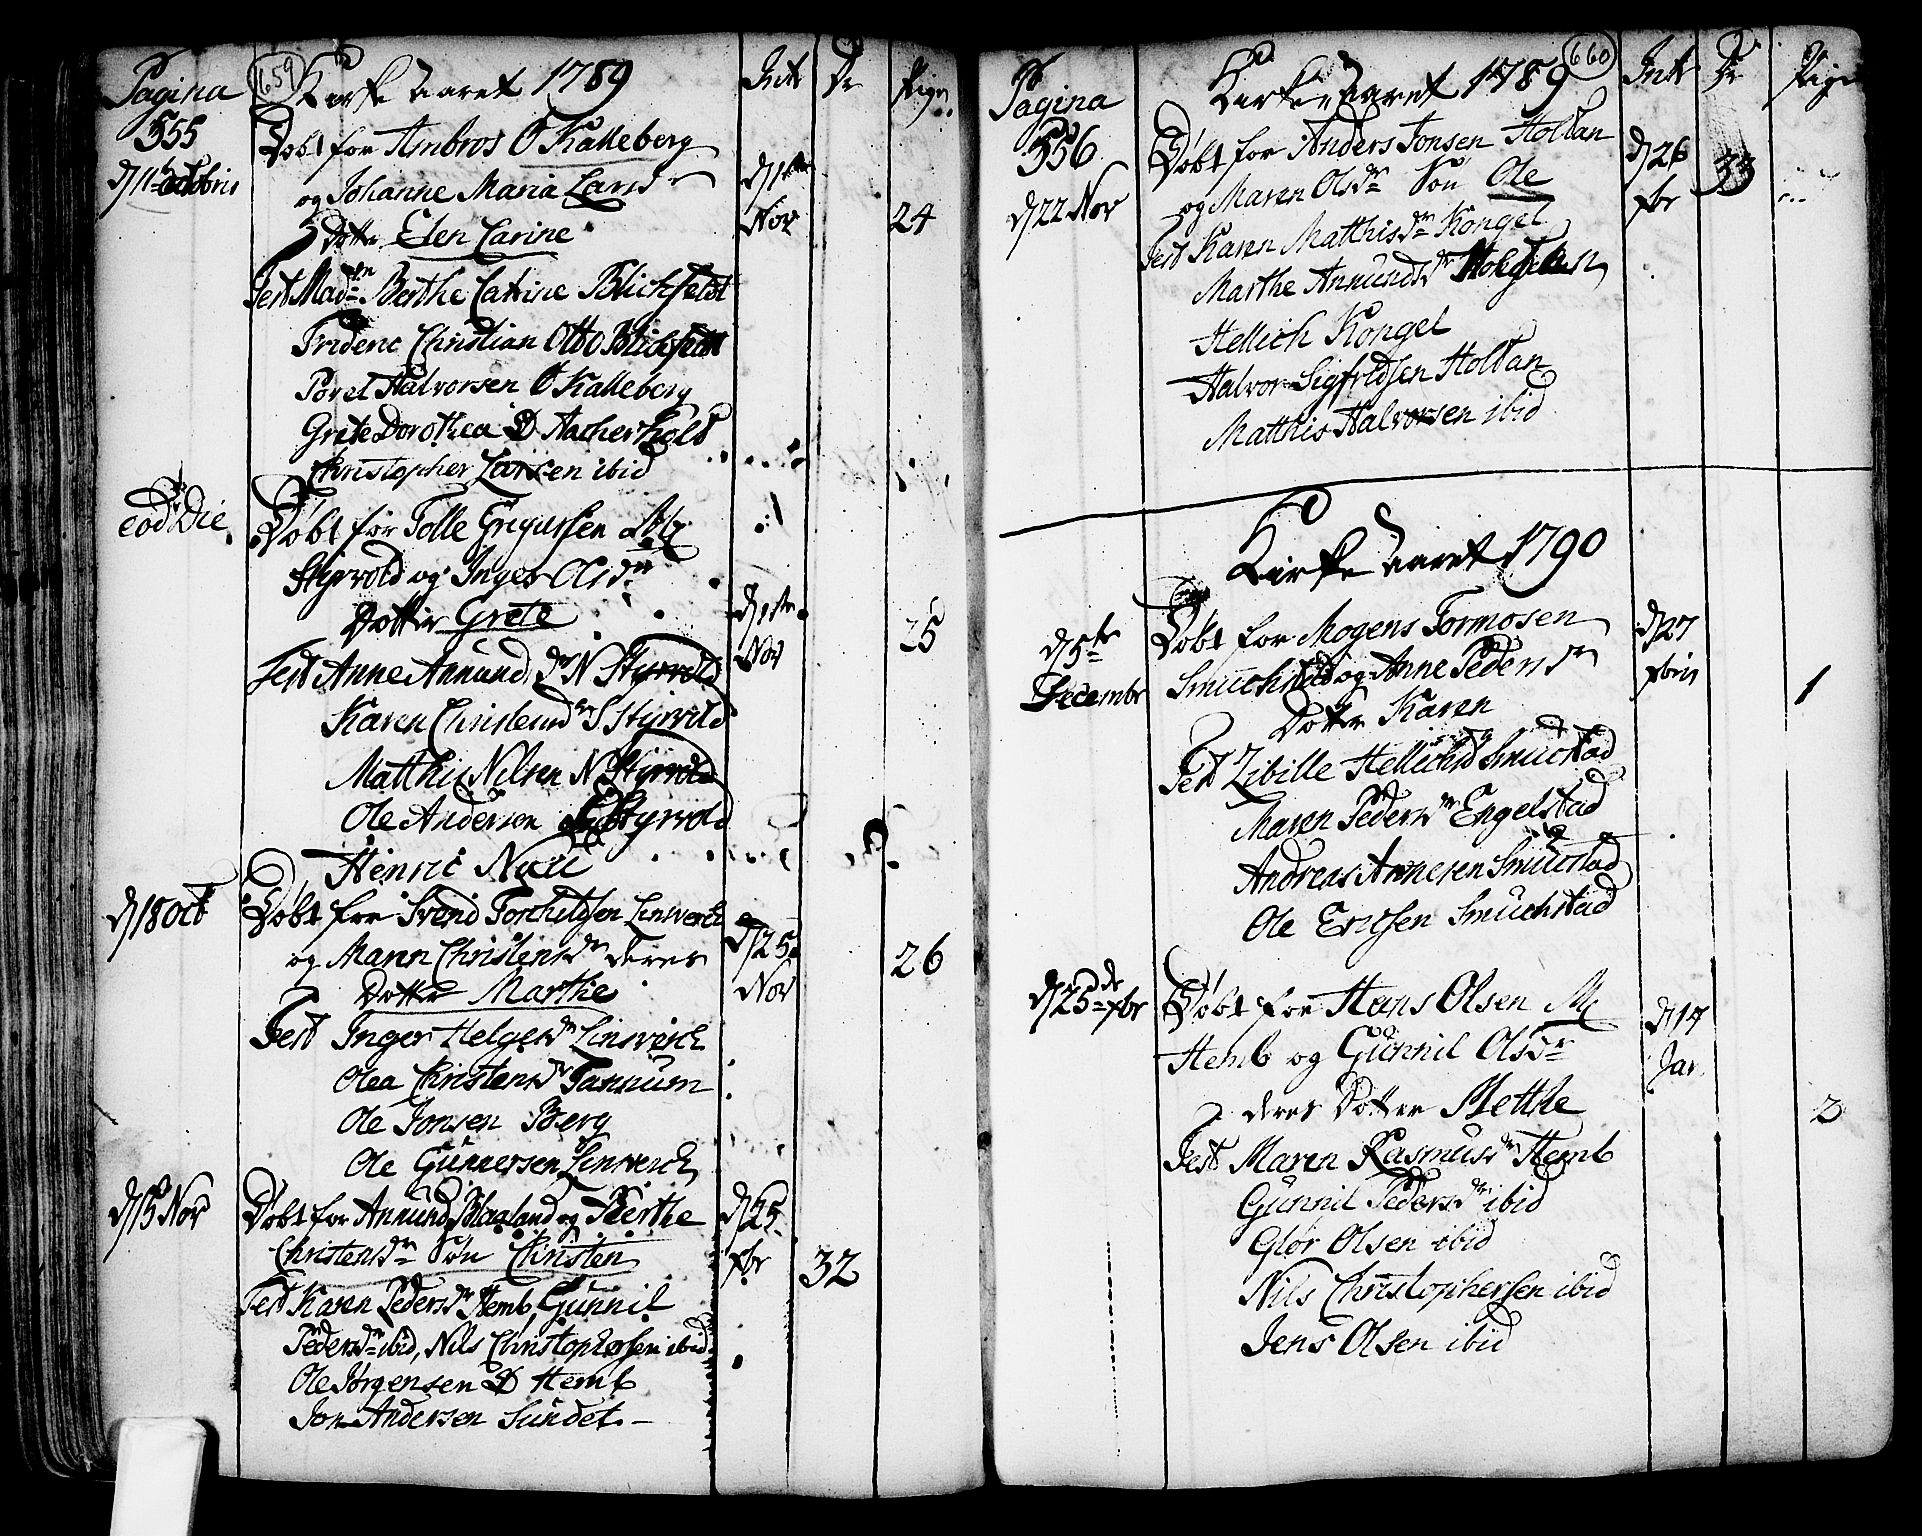 Pagina
555
659
Kirke Aaret 1789
Intr
Dr
Pige
d 11te octobris
Døbt for Ambros Ø Kalleberg
og Johanne Maria Larsdr
Dotter Elen Carine
d 1ste
Nov
24
Test Madm Berthe Catrine Blichfeldt
Frideric Christian Otto Blichfeldt
Povel Halvorsen Ø Kalleberg
Grete Dorothea D Aacherholt
Christopher Larsen ibid
eod Die
Døbt for Tolle Gregersen
Styrvold og Inger Olsdr
Dotter Grete
d 1ste
Nov
25
Test Anne Anundsdr N Styrvold
Karen Christensdr S Styrvold
Matthis Nilsen N Styrvold
Ole Andersen Styrvold
Henric
d 18 Oct
Døbt for Svend Torchildsen Linverch
og Maren Christensdr deres
Dotter Marthe
d 25
Nov
26
Test Inger Helgesdr Linverch
Olea Christensdr Tannum
Ole Jonsen Berg
Ole Gunnersen Linverch
d 15 Nov
Døbt for Annund Blagland og Berthe
Christensdr Søn Christen
d 25
xbr
32
Test Karen Pedersdr Hemb, Gunnil
Pedersdr ibid, Nils Christophersen ibid
Ole Jørgensen D Hemb
Jon Andersen Sundet.
Pagina
556
660
Kirke Aaret 1789
Intr
Dr
Pige
d 22 Nov
Døbt for Anders Jonsen Holtan
og Maren Olsdr Søn Ole
d 26
xbr
33
Test Karen Matthisdr Kongel
Marthe Annundsdr
Hellich Kongel
Halvor Sigfridsen Holtan
Matthis Halvorsen ibid
Kirke Aaret 1790
d 5te
Decembr
Døbt for Mogens Tormosen
Smuchstad og Anne Pedersdr
Dotter Karen
d 27
xbris
1
Test Zibille Hellichsd Smuchstad
Maren Pedersdr Engelstad
Andreas Arnesen Smuchstad
Ole Ericsen Smuchstad
d 25de xbr
Døbt for Hans Olsen M
Hemb og Gunnil Olsdr
deres Dotter Metthe
d 17
Jan
2
Test Maren Rasmusdr Hemb
Gunnil Pedersdr ibid
Glør Olsen ibid
Nils Christophersen ibid
Jens Olsen ibid